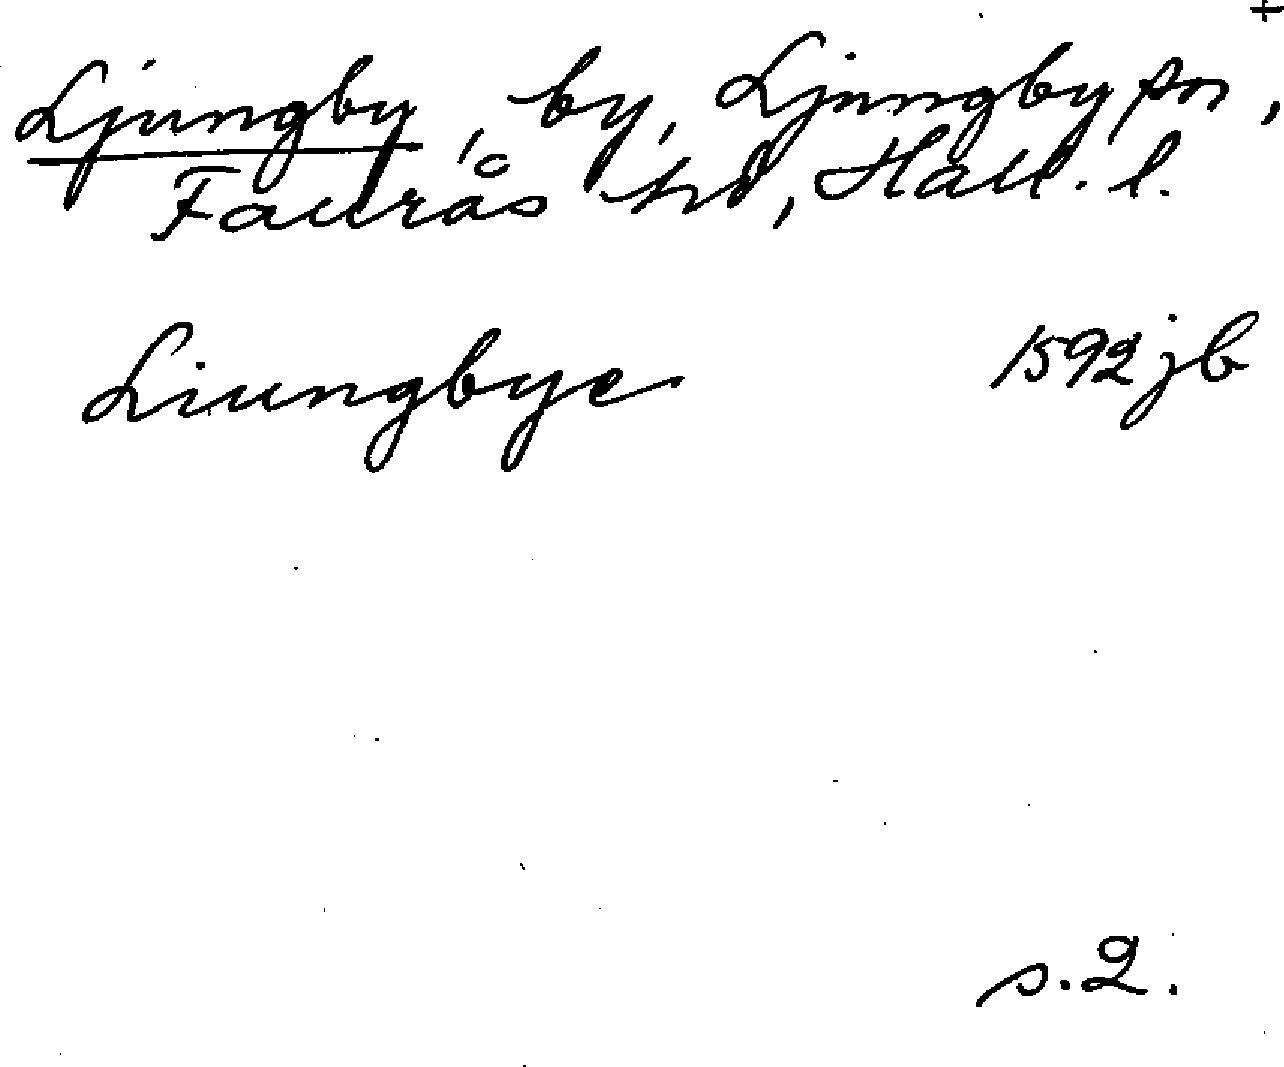 +
Ljungby, by, Ljungby sn,
Faurås hd, Hall. l.
Liungbye 1592 jb
s. 2.